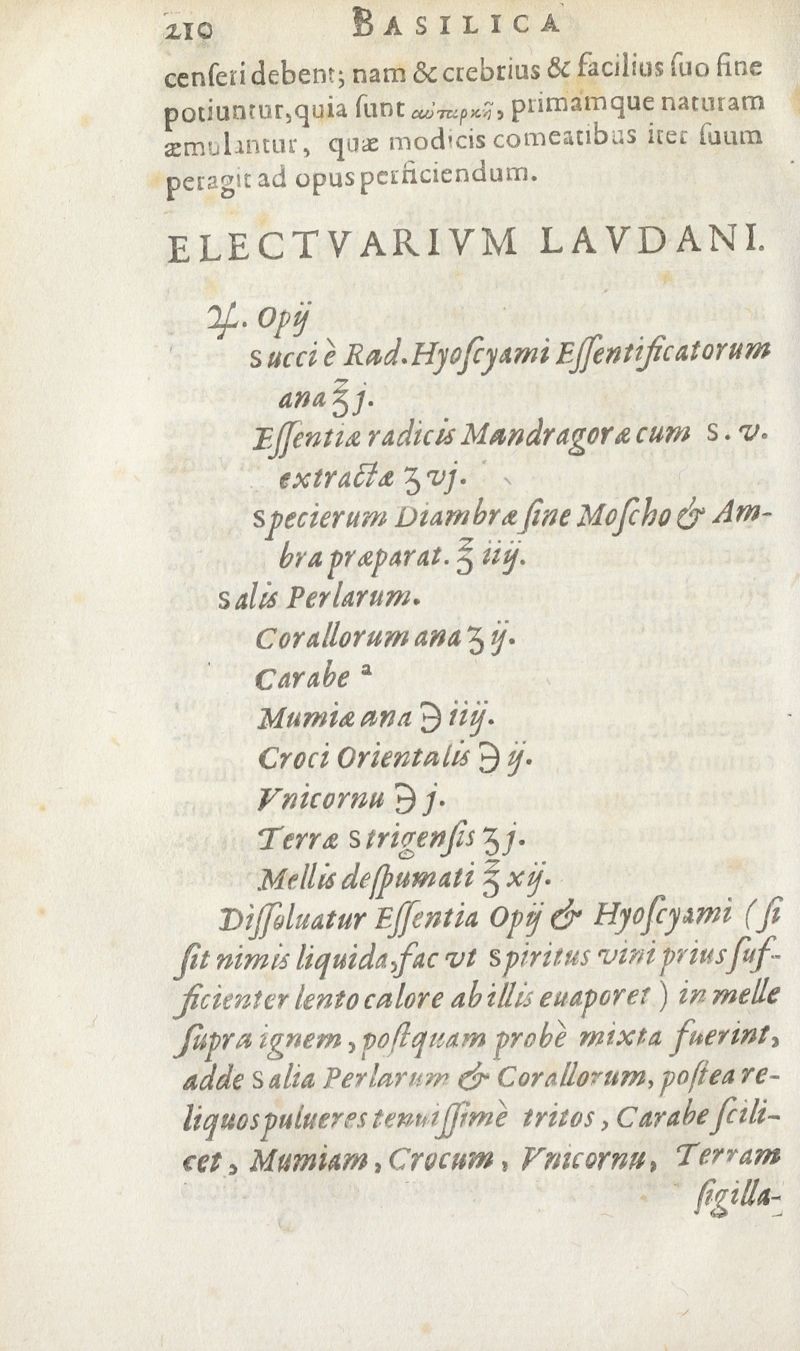 210 BASILICA
cenſeri debent; nam & crebrius & facilius ſuo fine
potiuntur, quia ſunt primamque naturam
æmulantur, quæ modicis comeatibus iter ſuum
peragit ad opus perficiendum.
ELECTVARIVM LAVDANI.
♃. Opij
Succi è Rad. Hyoſcyami Eſſentificatorum
ana ℥ j.
Eſſentiæ radicis Mandragoræ cum S. v.
extractæ ʒ vj.
Specierum Diambræ ſine Moſcho & Am-
bra præparat. ℥ iij.
Salis Perlarum.
Corallorum ana ʒ ij.
Carabe ª
Mumiæ ana ℈ iij.
Croci Orientalis ℈ ij.
Vnicornu ℈ j.
Terræ Strigenſis ʒ j.
Mellis deſpumati ℥ xij.
Diſſoluatur Eſſentia Opij & Hyoſcyami (ſi
ſit nimis liquida, fac vt Spiritus vini prius ſuf-
ficienter lento calore ab illis euaporet) in melle
ſupra ignem, poſtquam probè mixta fuerint,
adde Salia Perlarum & Corallorum, poſtea re-
liquos pulueres tenuiſſimè tritos, Carabe ſcili-
cet, Mumiam, Crocum, Vnicornu, Terram
ſigilla-